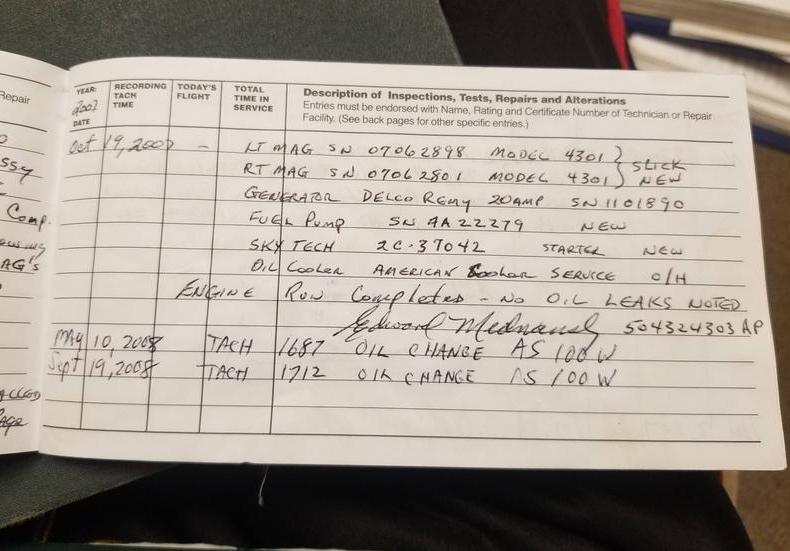 Repair
ssy
Comp.
AG'S
Page
YEAR:
DATE
RECORDING TACH TIME
TODAY'S FLIGHT
TOTAL TIME IN SERVICE
Description of Inspections, Tests, Repairs and Alterations
Entries must be endorsed with Name, Rating and Certificate Number of Technician or Repair
Facility. (See back pages for other specific entries.)
Oct 19, 2007 - LT MAG SN 07062898 MODEL 4301 } SLICK
RT MAG SN 07062801 MODEL 4301 } NEW
GENERATOR DELCO REMY 20AMP SN 1101890
FUEL PUMP SN AA22279 NEW
SKY TECH 2C-37042 STARTER NEW
OIL COOLER AMERICAN COOLER SERVICE O/H
ENGINE RUN Completed - NO OIL LEAKS NOTED
Edward 504324303 AP
MAY 10, 2008 TACH 1687 OIL CHANGE AS 100 W
Sept 19, 2008 TACH 1712 OIL CHANGE AS 100 W